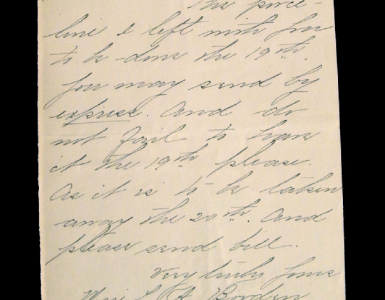 The porce-
line I left with you
to be done the 19th.
you may send by
express. And do
not fail to have
it the 19th please.
As it is to be taken
away the 20th. And
please send bill.
Very truly yours
Miss L. A. Borden